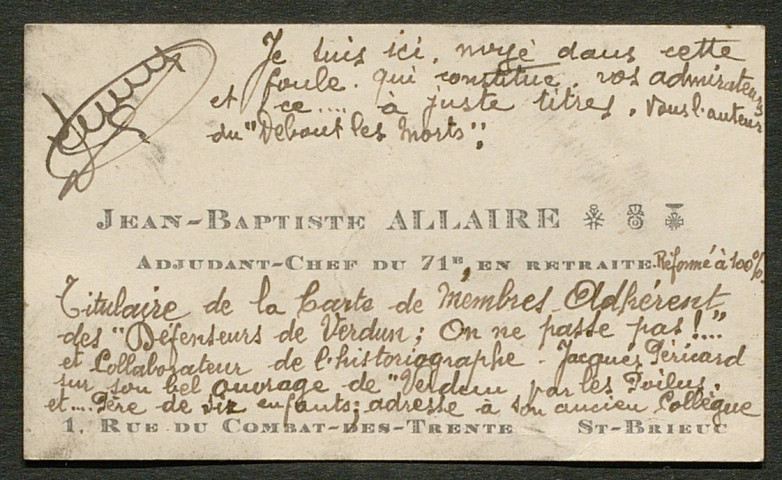 Je suis ici, noyé dans cette
foule. qui constitue, vos admirateurs
et ce.... à juste titres, Vous l'auteur
du "Debout les Morts";
JEAN-BAPTISTE ALLAIRE
ADJUDANT-CHEF DU 71E, EN RETRAITE. Réformé à 100%.
Titulaire de la Carte de Membres Adhérent
des "Défenseurs de Verdun; On ne passe pas!..."
et Collaborateur de l'historiographe - Jacques Péricard
sur son bel ouvrage de "Verdun par les Poilus.
et.... Père de six enfants; adresse à son ancien Collègue
1, RUE DU COMBAT-DES-TRENTE ST-BRIEUC